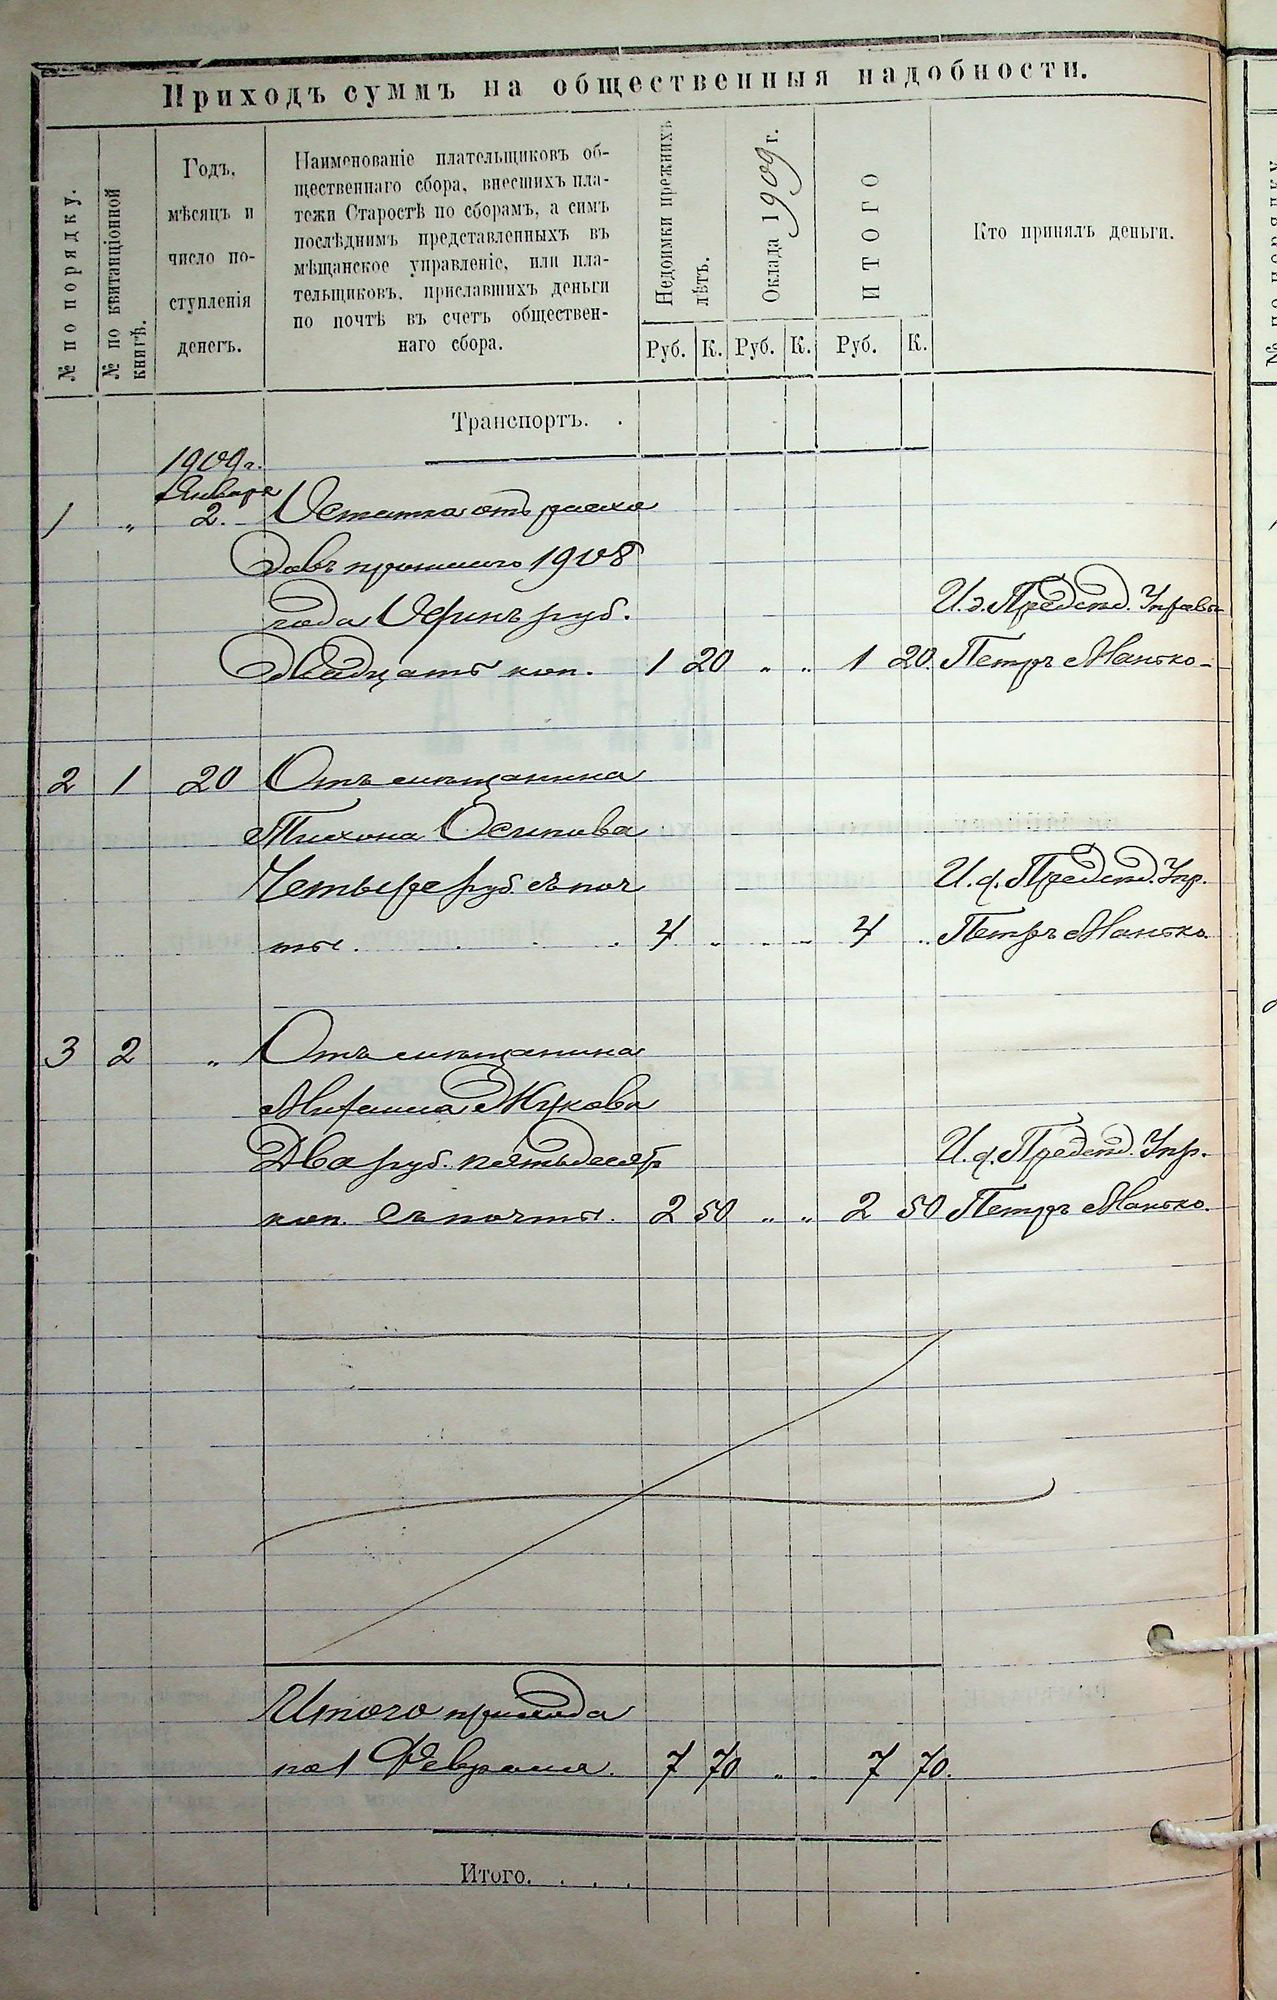 Приходъ суммъ на общественныя надобности.
№ по порядку.
№ по квитанціонной
книгѣ.
Годъ,
мѣсяцъ и
число по-
ступленія
денегъ.
Наименованіе плательщиковъ об-
щественнаго сбора, внесшихъ пла-
тежи Старостѣ по сборамъ, а симъ
послѣднимъ представленныхъ въ
мѣщанское управленіе, или пла-
тельщиковъ, приславшихъ деньги
по почтѣ въ счетъ обществен-
наго сбора.
Недоимки прежнихъ
лѣтъ.
Оклада 1909 г.
ИТОГО
Кто принялъ деньги.
Руб. К. Руб. К. Руб. К.
Транспортъ. .
1909 г.
Января
1 „ 2. Остатка отъ расхо
довъ прошлаго 1908
года Одинъ руб. И. д. Предсѣд. Управы
Двадцать коп. 1 20 „ „ 1 20 Петръ Манько
2 1 20 Отъ мѣщанина
Тихона Осипова
Четыре руб. съ поч И. д. Предсѣд. Упр.
ты. . . . . 4 „ „ „ 4 „ Петръ Манько.
3 2 „ Отъ мѣщанина
Михаила Жукова
Два руб. пятьдесятъ И. д. Предсѣд. Упр.
коп. съ почты. 2 50 „ „ 2 50 Петръ Манько.
Итого прихода
на 1 Февраля. 7 70 „ „ 7 70.
Итого. . . .